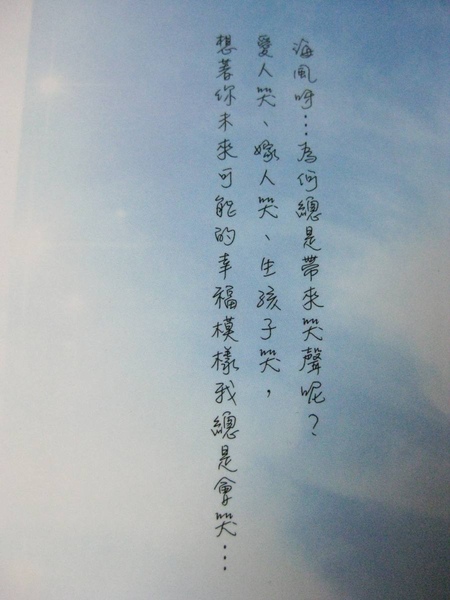 海風呀…為何總是帶來笑聲呢？
愛人笑、嫁人笑、生孩子笑，
想著你未來可能的幸福模樣我總是會笑…